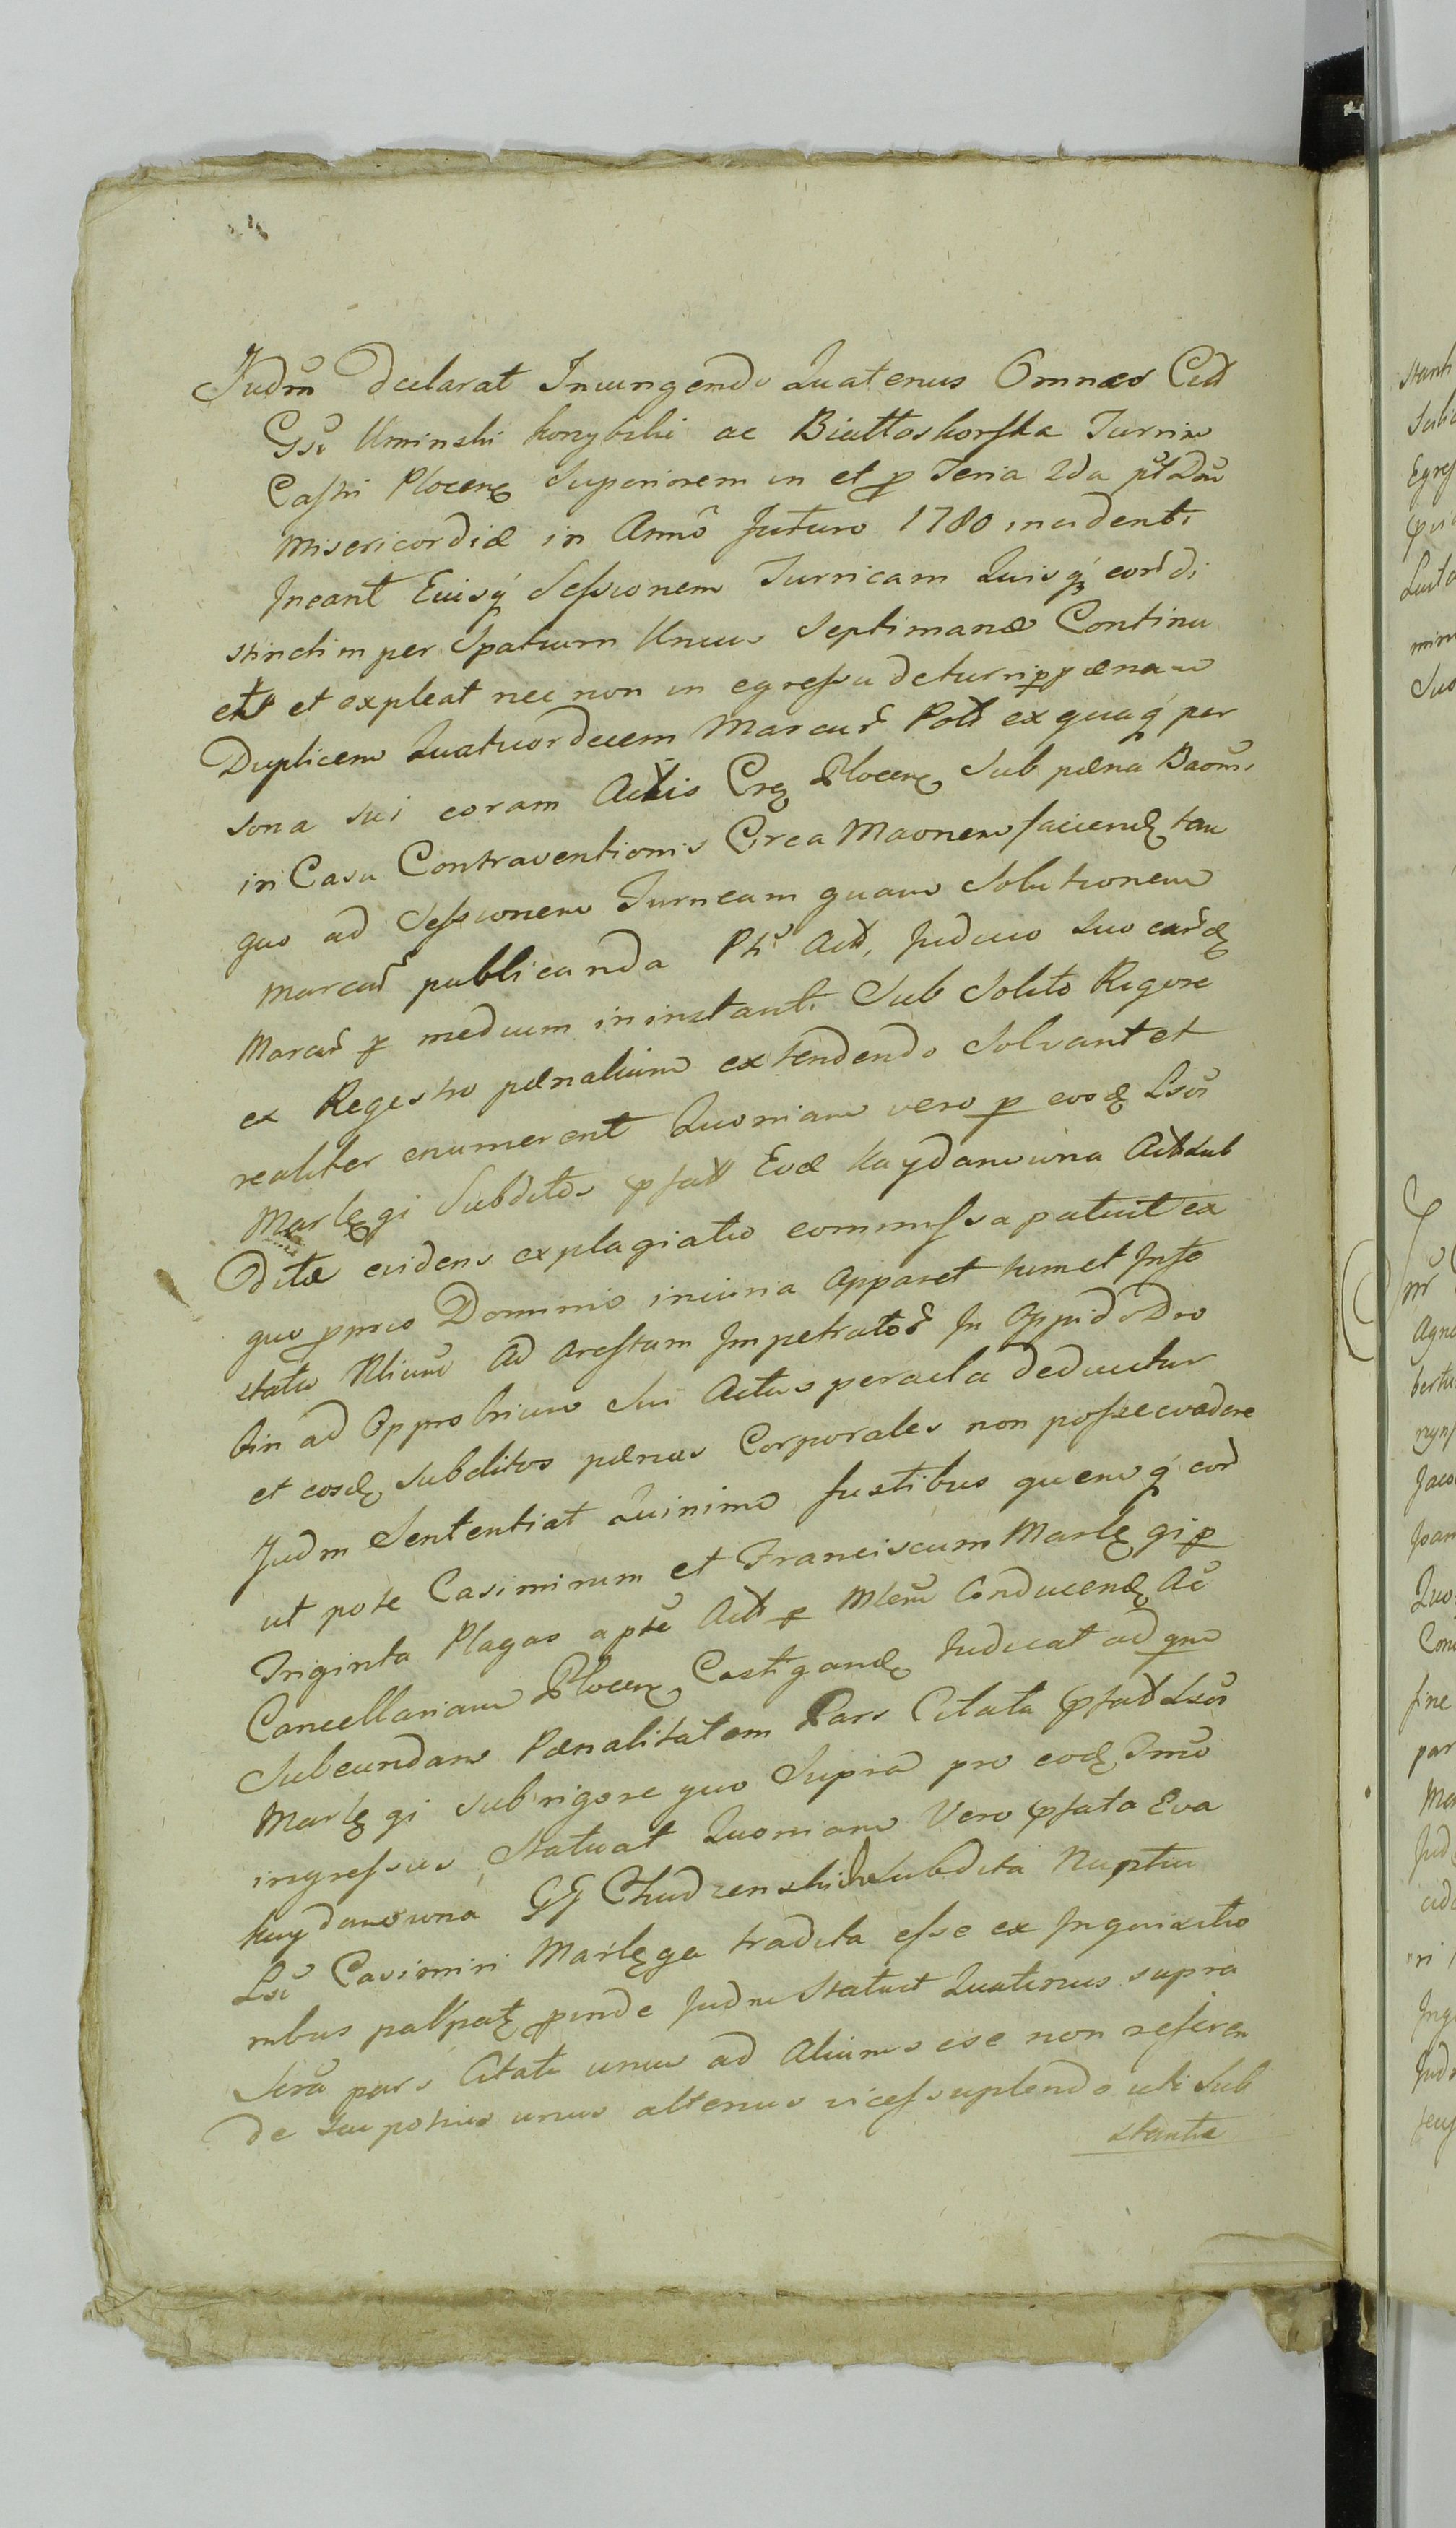 Judm declarat Iniungendo Quatenus Omnes Citt
Gsi Uminski Konybski ac Biattoskorska Turrim
Castri Plocen Superiorem in et p Feria 2da pst Dm
Misericordiæ in Anno futuro 1780 incidenti
Ineant Euisq Sessionem Turricam Quisq eor di
stinctim per Spatium Unius Septimanæ Continu
et et expleat nec non in egressu de turri p pænam
Duplicem Quatuordecem Marcar Poll ex quaq per
sona sui coram Actis Crg Plocen Sub pæna Baonis
in Casu Contraventionis Circa Maonem faciend tan
quo ad Sessionem Turricam quam Solutionem
Marcar publicanda Pti Act, Judicio Quo eard
Marcar p medium in instanti Sub Solito Rigore
ex Regestro pænalium extendendo Solvant et
realiter enumerent Quoniam vero p eosd Lsos
Marlęgi Subditos pfatt Evæ Kaydanowna Act Sub
ditæ evidens explagiatio commissa patuit ex
quo pprio Dominio iniuria Apparet tum et Infe
statio Aliume Ad Arestum Impetrator In Oppido Dro
bin ad Opprobrium Sui Actus peracta deducitur
et eosd subditos pænas Corporales non posse evadere
Judm Sententiat Quinimo fustibus quemq eor
ut pote Casimirum et Franciscum Marlęgi p
Triginta Plagas a pte Act p Mlem Conducend Ac
Cancellariam Plocen Castigand Iudicat ad qm
Subeundam Pænalitatem Pars Citata pfatt Lsos
Marlęgi sub rigore quo Supra pro eod Tmo
ingressus Statuat Quoniam Vero pfata Eva
Kaydanowna GG Chudzenskich Subdita Nuptui
Lsi Casimiri Marlęga tradita esse ex Inquisitio
nibus palpat pinde Judm Statuit Quatenus supra
Scra pars Citata unus ad Alium sese non referen
do Quipotius unus alterius vices suplendo uti Sub
stantia